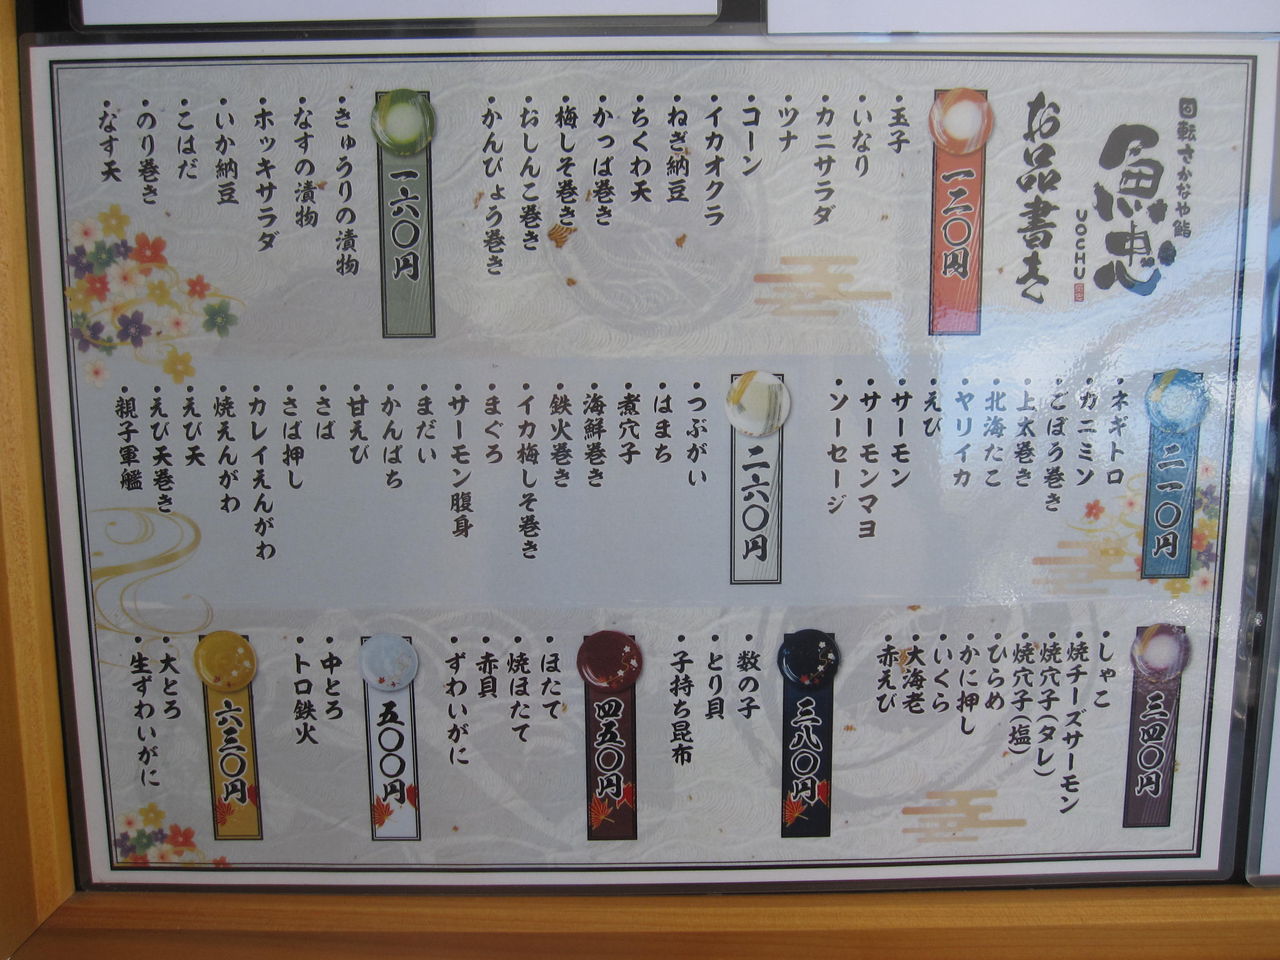 回転さかなや鮨
魚忠
UOCHU
お品書き
一二〇円
・玉子
・いなり
・カニサラダ
・ツナ
・コーン
・イカオクラ
・ねぎ納豆
・ちくわ天
・かっぱ巻き
・梅しそ巻き
・おしんこ巻き
・かんぴょう巻き
一六〇円
・きゅうりの漬物
・なすの漬物
・ホッキサラダ
・いか納豆
・こはだ
・のり巻き
・なす天
二一〇円
・ネギトロ
・カニミソ
・ごぼう巻き
・上太巻き
・北海たこ
・ヤリイカ
・えび
・サーモン
・サーモンマヨ
・ソーセージ
二六〇円
・つぶがい
・はまち
・煮穴子
・海鮮巻き
・鉄火巻き
・イカ梅しそ巻き
・まぐろ
・サーモン腹身
・まだい
・かんぱち
・甘えび
・さば
・さば押し
・カレイえんがわ
・焼えんがわ
・えび天
・えび天巻き
・親子軍艦
三四〇円
・しゃこ
・焼チーズサーモン
・焼穴子(タレ)
・焼穴子(塩)
・ひらめ
・かに押し
・いくら
・大海老
・赤えび
三八〇円
・数の子
・とり貝
・子持ち昆布
四五〇円
・ほたて
・焼ほたて
・赤貝
・ずわいがに
五〇〇円
・中とろ
・トロ鉄火
六三〇円
・大とろ
・生ずわいがに